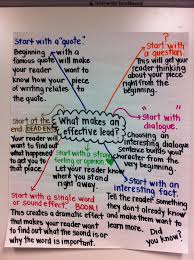 Start with a "quote."
Beginning with a
famous quote will make
your reader want
to know how your
piece of writing relates
to the quote.
Start with
a question.
This will get your
reader thinking
about your piece
right from the
beginning.
What makes an
effective lead?
Start at the
end.
DEAD END
Your reader will
want to find
out what
happened
to get to
your story to
that place.
Start with a strong
feeling or opinion
Let your reader know
where you stand
right away.
" "
Start with
dialogue.
Choosing an
interesting dialogue
sentence builds your
character from the
very beginning.
Start with an
interesting fact.
Tell the reader something
they don't already know
and make them
want to learn
more.
Did you
know?
Start with a single word
or sound effect. BOOM!
This creates a dramatic effect
that makes your reader want
to find out what the sound is or
why the word is important.